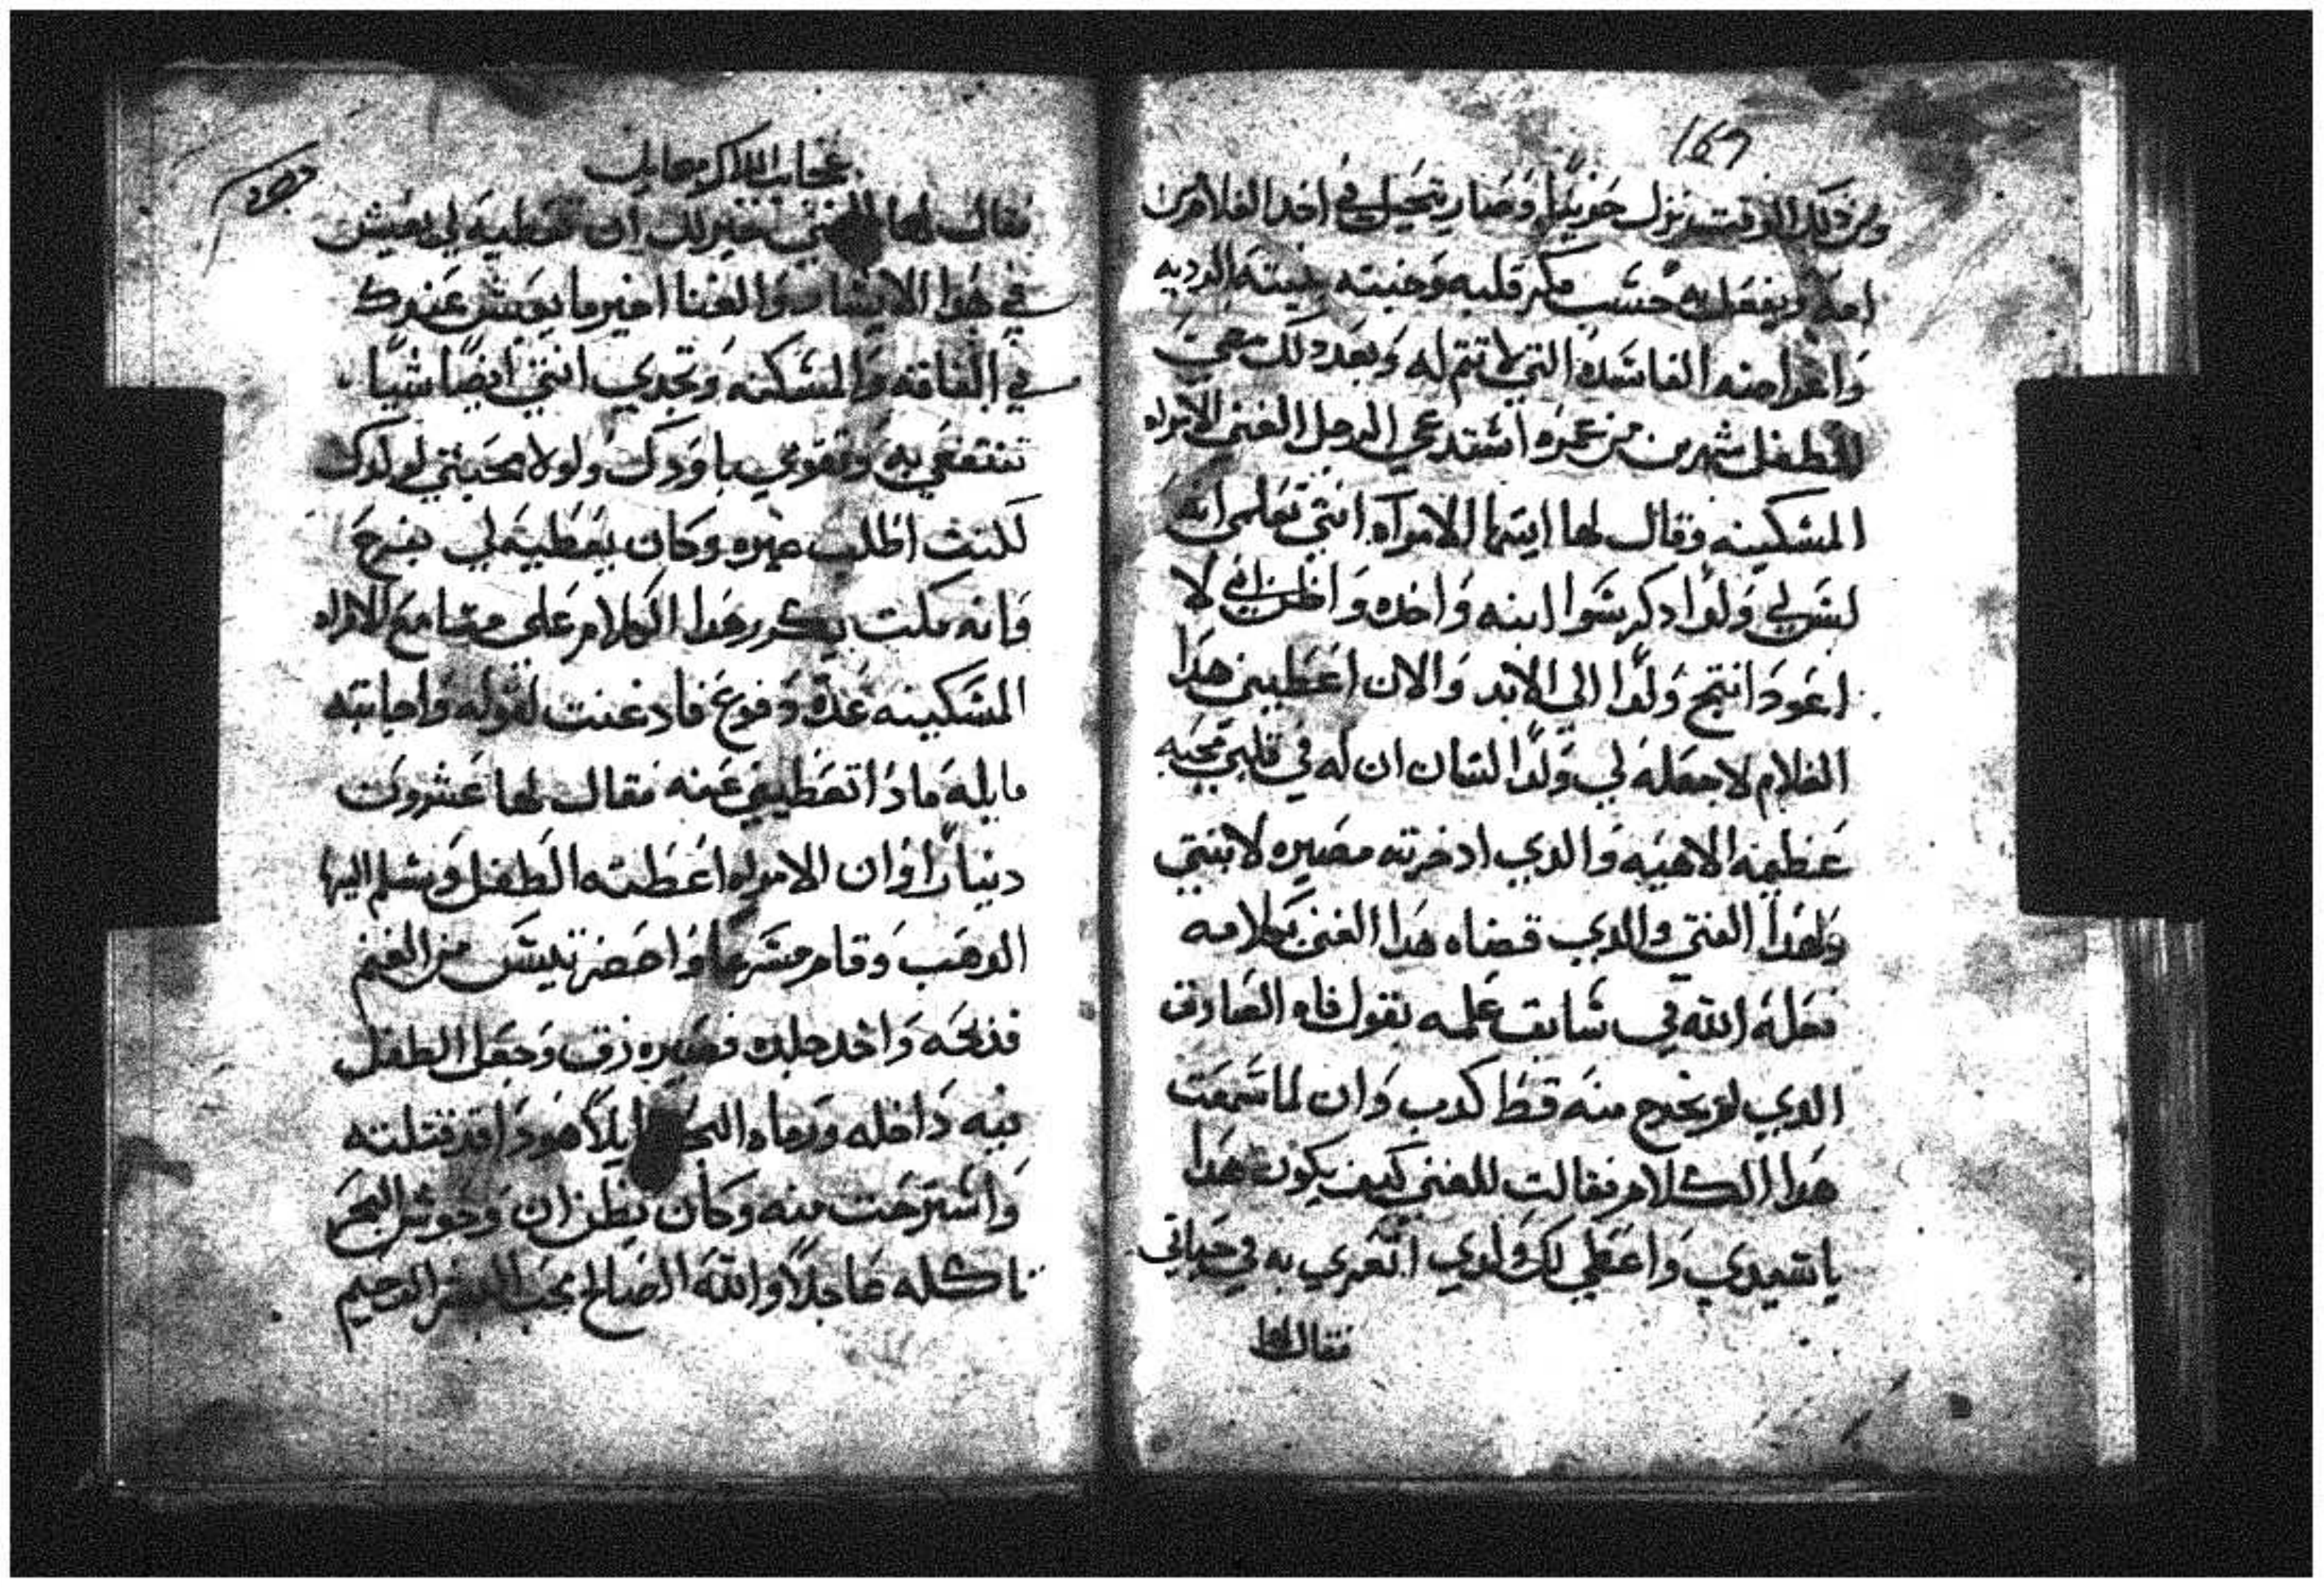 169
ومن ذلك الوقت نزل حزينًا وصار يتحيل في اخد الغلام من
امه ويفعل به حسب مكر قلبه وخبيته نيته الرديه
واغراضه الفاسده التي لا تتم له وبعد دلك مضي
للطفل شهرين من عمره استدعي الرجل الغني الامراه
المسكينه وقال لها ايتها الامراه انتي تعلمي انه
ليس لي ولدا دكر سوا ابنه واحده واظن اني لا
اعود انتج ولدا الي الابد والان اعطيني هدا
الغلام لاجعله لي ولدا لسان ان له في قلبي محبه
عظيمه الاهيه والدي ادخرته مصيره لابنتي
ولهدا الفتي والدي قضاه هدا الغني بكلامه
فعله الله في سابق علمه بقول فاه الصادق
الدي لم يخرج منه قط كدب وان لما سمعت
هدا الكلام فقالت للغني كيف يكون هدا
يا سيدي واعطي لك ولدي اتعزي به في حياتي
فقال لها
فقال لها الغني خير لك ان تعطيه لي يعيش
في هدا الايسار والغنا اخير ما يعيش عندك
في الفاقه والمسكنه وتجدي انتي ايضًا شيًا
تنتفعي به وتقوتي باودك ولولا محبتي لولدك
لكنت اطلب غيره وكان يعطيه لي بفرح
وانه مكت يكرر هدا الكلام علي مسامع الامراه
المسكينه عدة دفوع فادعنت لقوله واجابته
قايله مادا تعطيني عنه فقال لها عشرون
دينارًا وان الامراه اعطته الطفل وتسلم اليها
الدهب وقام مسرعًا واحضر تيس من الغنم
فدبحه واخد جلده فصيره زق وجعل الطفل
فيه داخله ورماه البحر قايلاً هودا قد قتلته
واسترحت منه وكان يظن ان وحوش البحر
تاكله عاجلاً والله الصالح محب البشر الرحيم